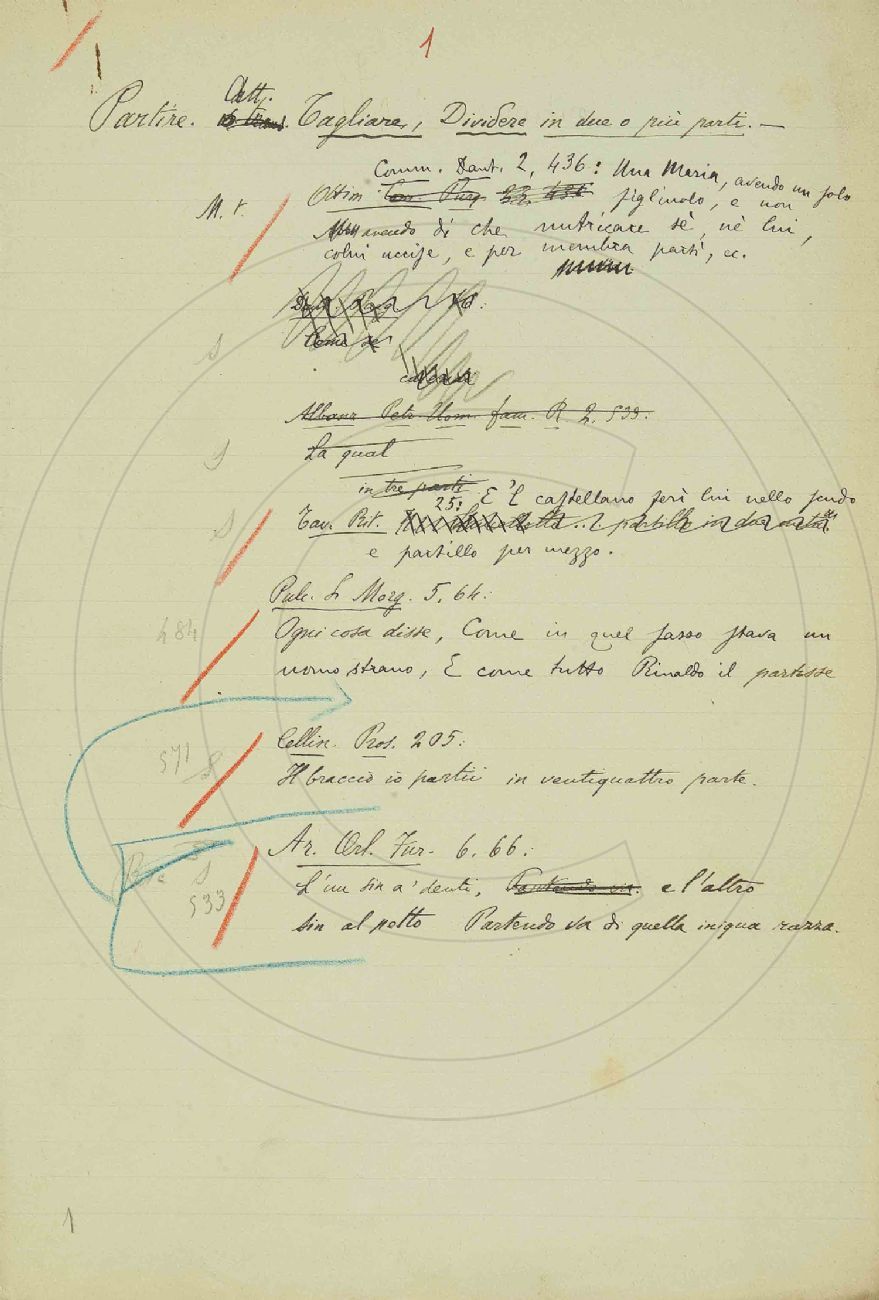 1
Partire. Att. Tagliare, Dividere in due o più parti. —
Comm. Dant. 2, 436: Una Maria, avendo un solo
M. r. Ottim. figliuolo, e non
avendo di che nutricare sè, nè lui,
colui uccise, e per membra partì, ec.
S
Albanz. Petr. Uom. fam. R 2. 533.
S La qual
in tre parti
25: E 'l castellano ferì lui nello scudo
S Tav. Rit.
e partillo per mezzo.
Pulc. L. Morg. 5, 64:
484 Ogni cosa disse, Come in quel sasso stava un
uomo strano, E come tutto Rinaldo il partisse
Cellin. Pros. 205:
571 S Il braccio io partii in ventiquattro parte.
Ar. Orl. Fur. 6. 66:
S L'un sin a' denti, e l'altro
533 sin al petto Partendo va di quella iniqua razza.
1